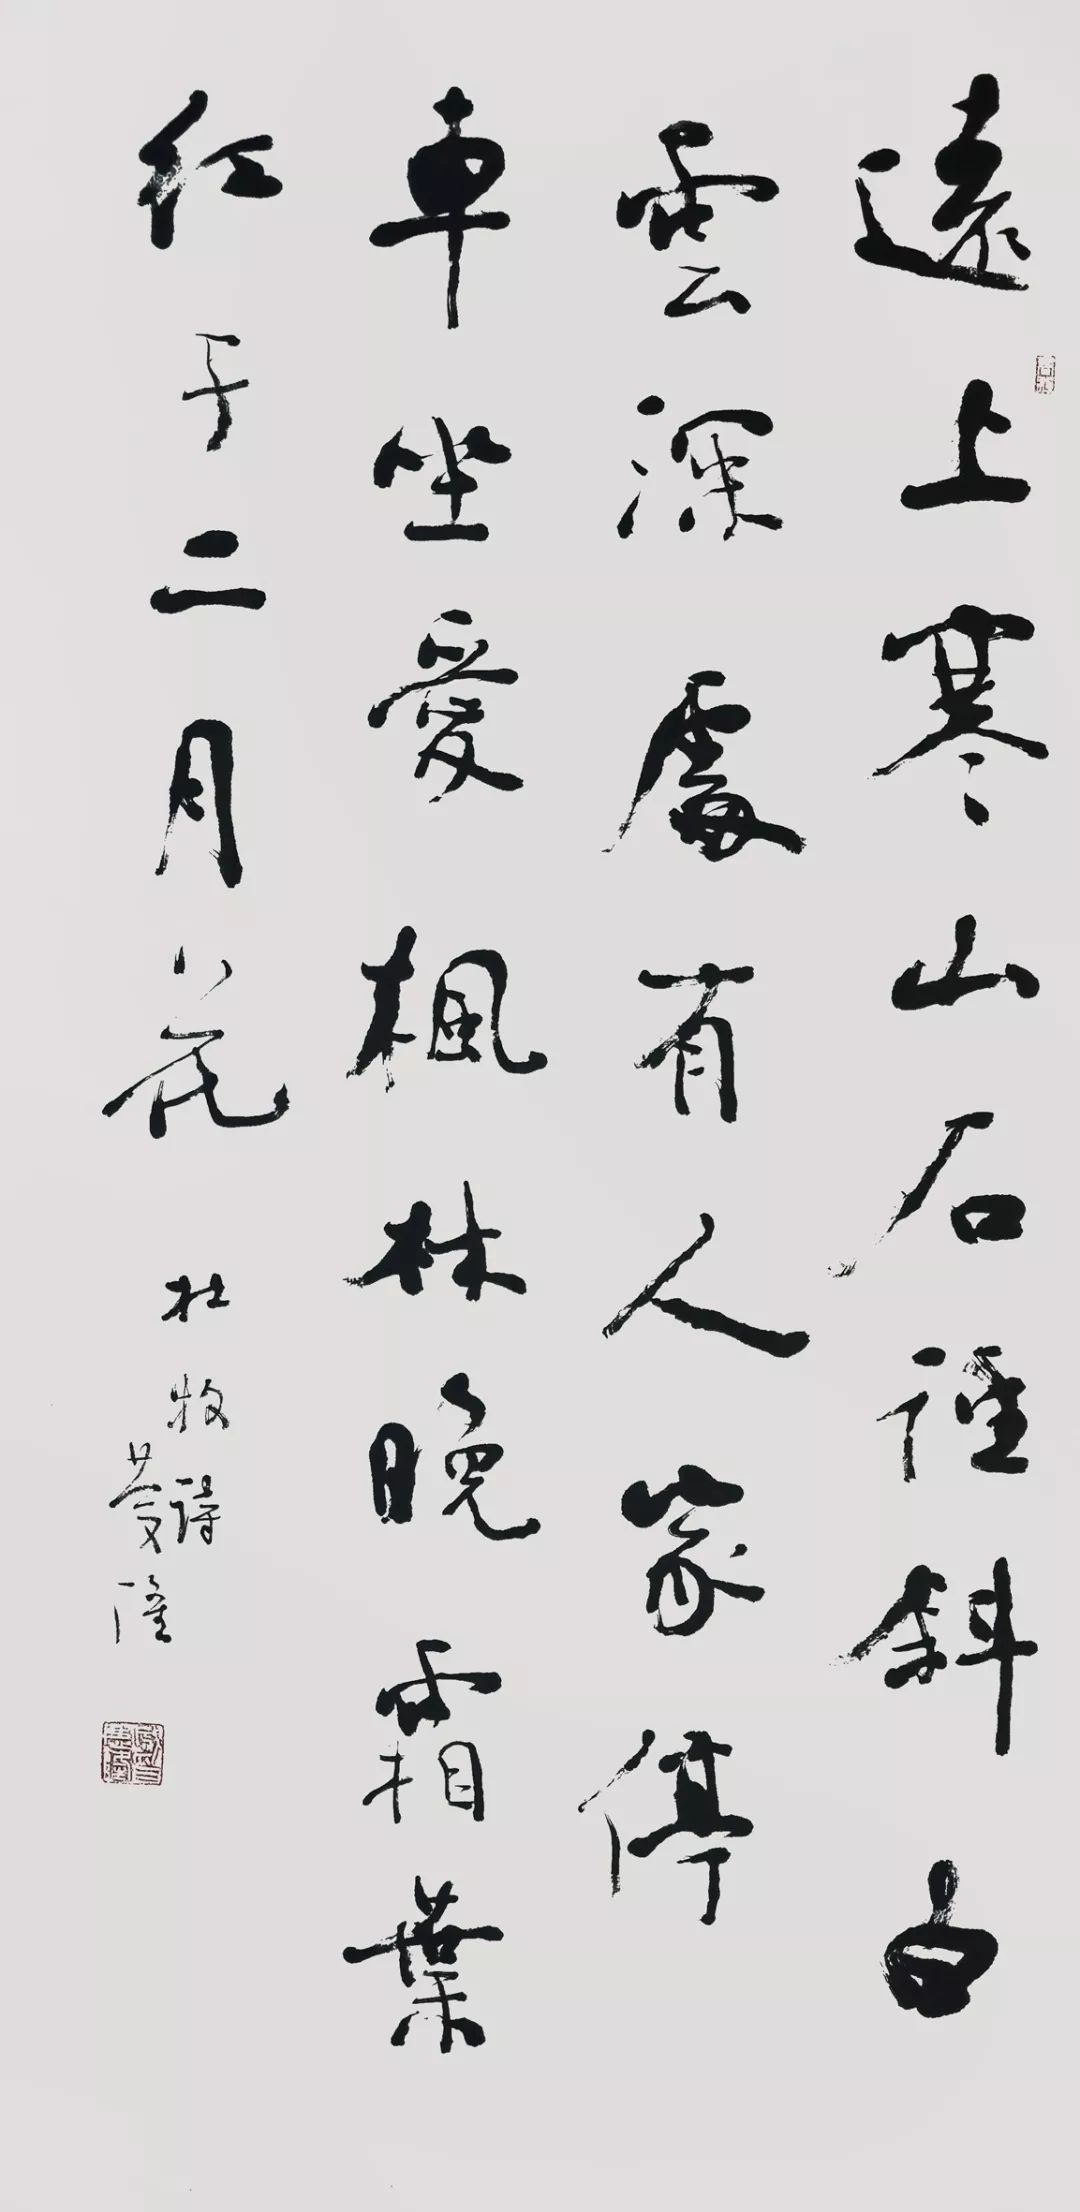 遠上寒山石徑斜白
雲深處有人家停
車坐愛楓林晚霜葉
紅于二月花
杜牧詩
慶隆